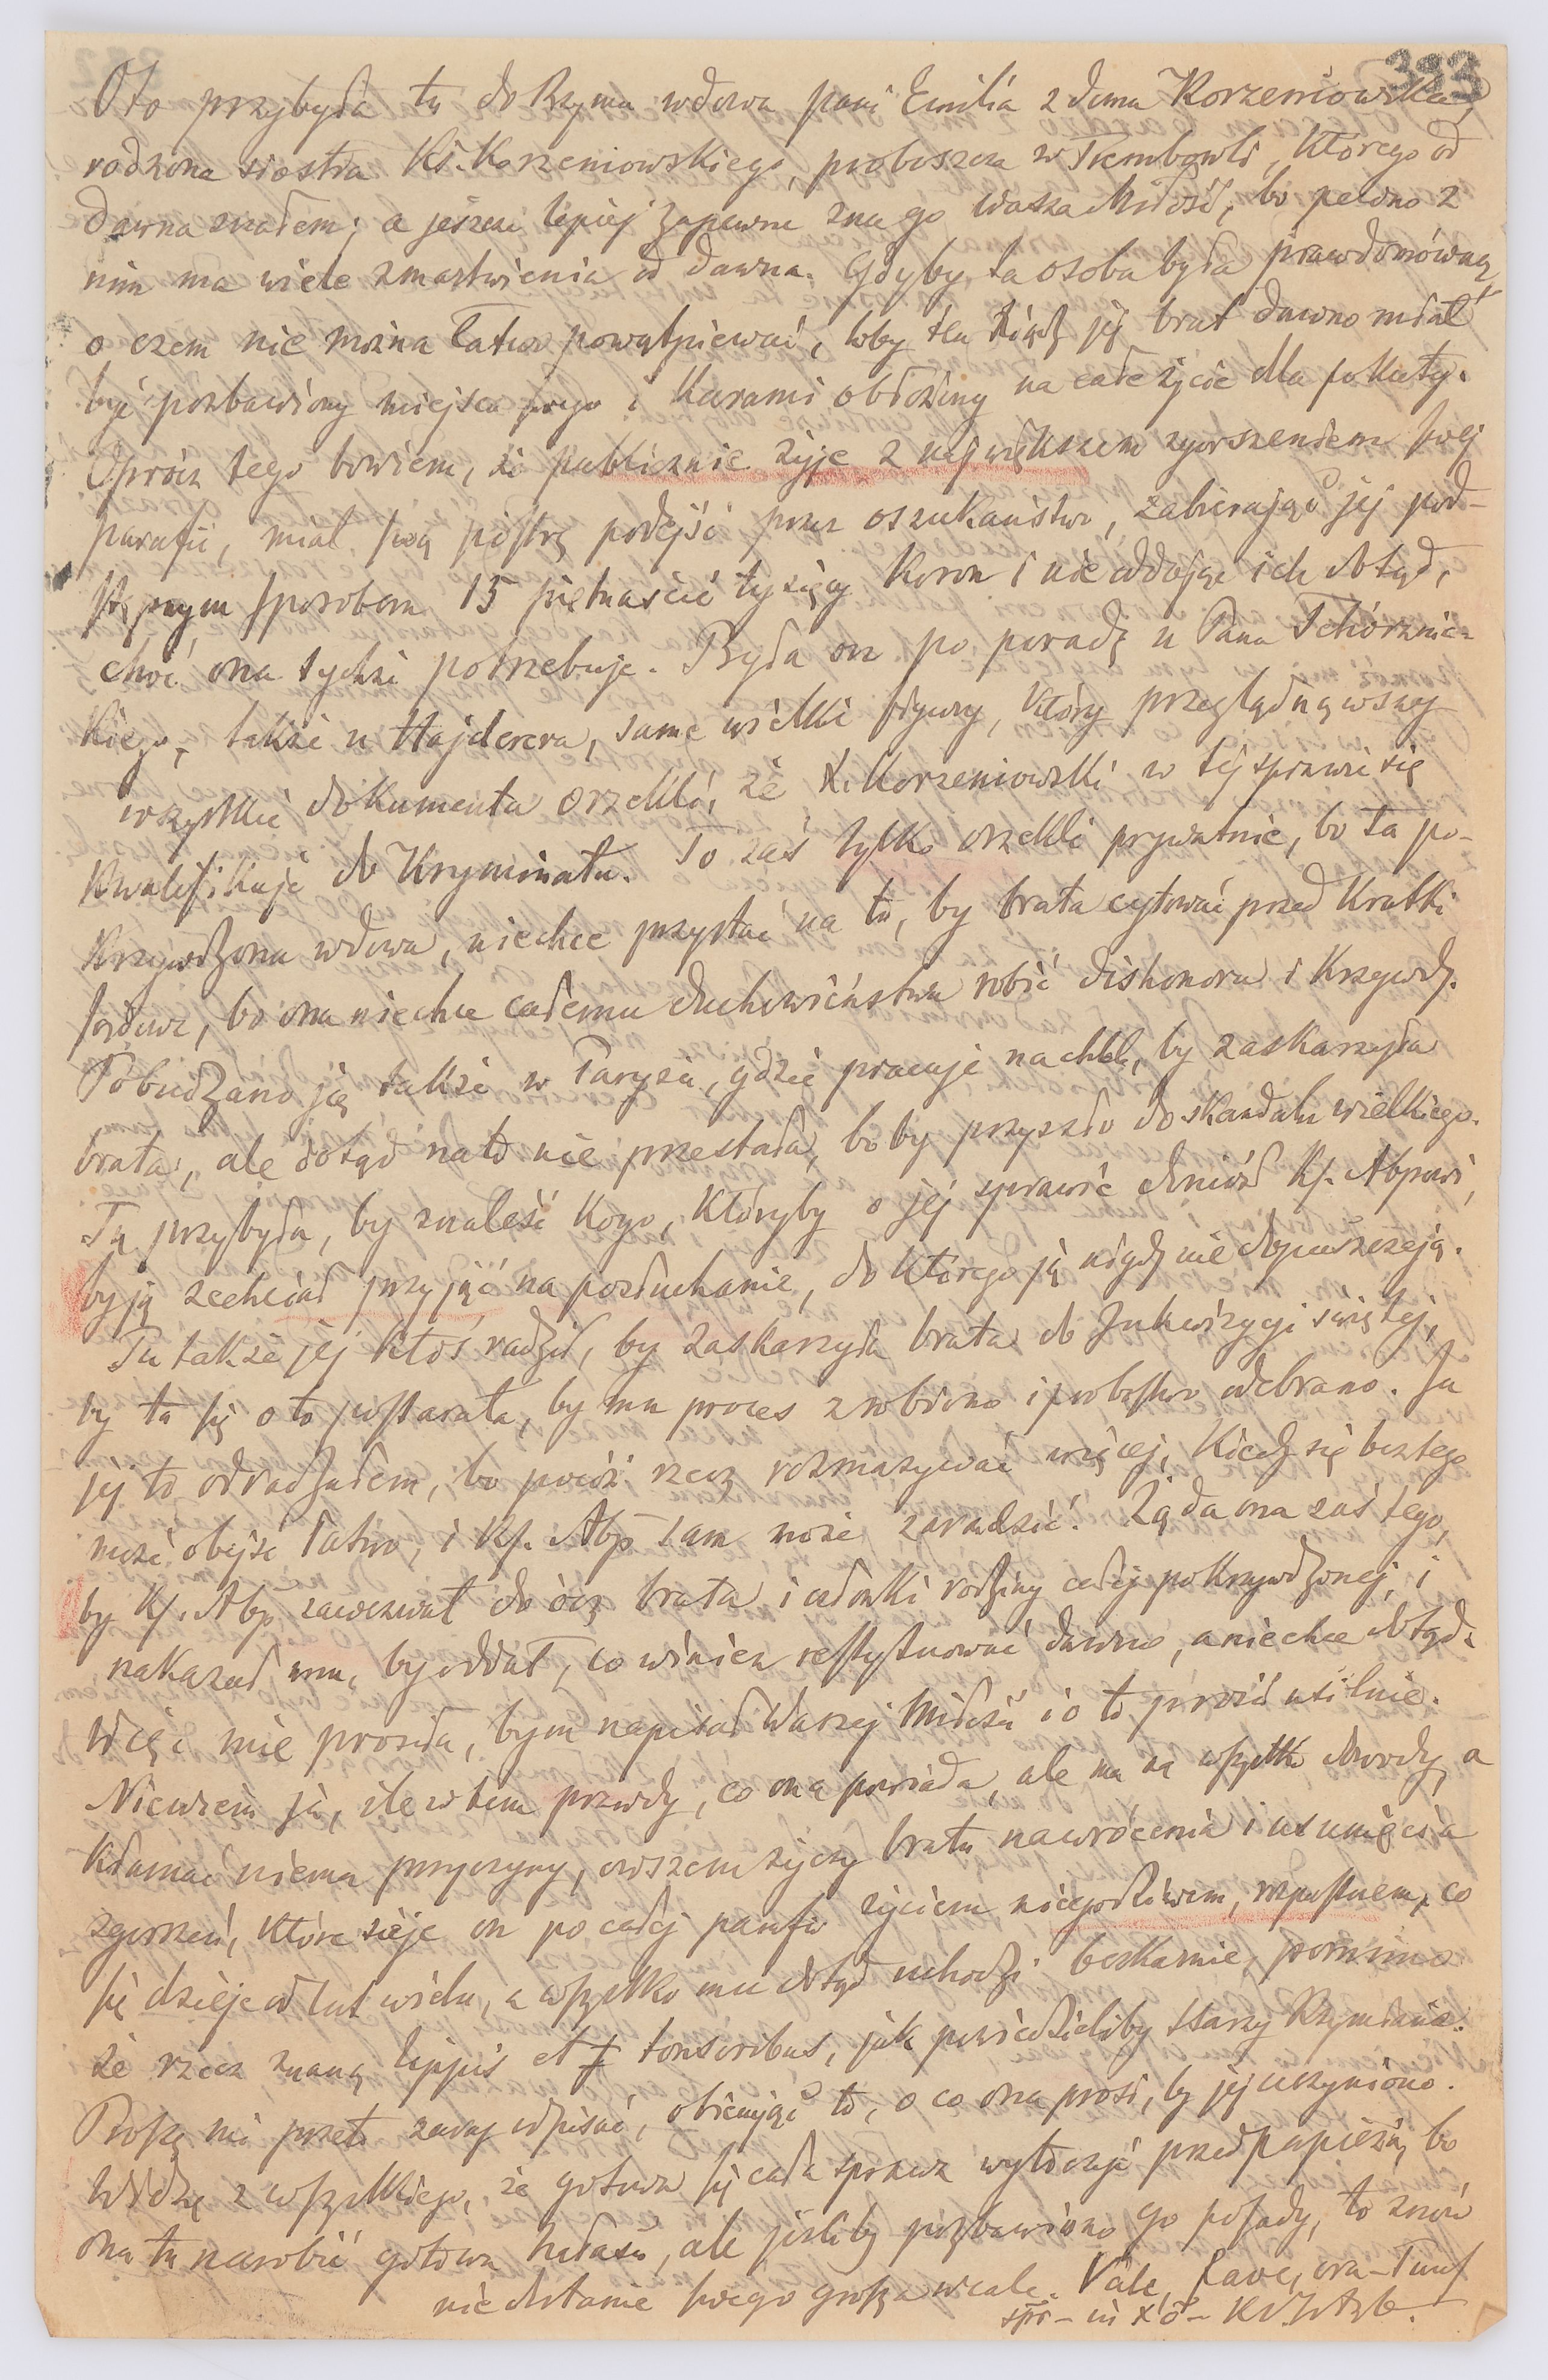 393
Oto przybyła tu do Rzymu wdowa pani Emilia z domu Korzeniowska,
rodzona siostra Ks. Korzeniowskiego, proboszcza w Trembowli, którego od
dawna znałem; a jeszcze lepiej zapewne zna go Wasza Miłość, bo pewno z
nim ma wiele zmartwienia od dawna. Gdyby ta osoba była prawdomówną,
o czem nie można łatwo powątpiewać, toby ten ksiądz jej brat dawno miał
być pozbawiony miejsca swego i karami obłożony na całe życie dla pokuty.
Oprócz tego bowiem, że publicznie żyje z największem zgorszeniem swej
parafii, miał swą siostrę podejść przez oszukaństwo, zabierając jej pod-
stępnym sposobem 15 piętnaście tysięcy koron i nie oddając ich dotąd,
choć ona tychże potrzebuje. Była ona po poradę u Pana Tchórznic-
kiego, także u Hajderera, same wielkie figury, który przeglądnąwszy
wszystkie dokumenta orzekli, że X. Korzeniowski w tej sprawie się
kwalifikuje do kryminału. To zaś tylko orzekli prywatnie, bo ta po-
krzywdzona wdowa, niechce przystać na to, by brata cytować przed kratki
sądowe, bo ona niechce całemu duchowieństwu robić dishonoru i krzywdy.
Pobudzano ją także w Paryżu, gdzie pracuje na chleb, by zaskarżyła
brata, ale dotąd na to nie przestała, bo by przyszło do skandalu wielkiego.
Tu przybyła, by znaleść kogo, któryby o jej sprawie doniósł Ks. Abpowi,
by ją zechciał przyjąć na posłuchanie, do którego ją nigdy nie dopuszczają.
Tu także jej ktoś radził, by zaskarżyła brata do Inkwizycji świętej,
by ta się o to postarała, by mu proces zrobiono i probostwo odebrano. Ja
jej to odradzałem, bo pocóż rzecz rozmazywać więcej, kiedy się bez tego
może obejść łatwo, i Ks. Abp sam może zaradzić. Żąda ona zaś tego,
by Ks. Abp. zawezwał do ócz brata i członki rodziny całej pokrzywdzonej, i
nakazał mu, by oddał, co winien restytuować dawno, a niechce dotąd.
Więc mię prosiła, bym napisał Waszej Miłości i o to prosił usilnie.
Niewiem ja, ile w tem prawdy, co ona powiada, ale ma na wszystko dowody, a
kłamać niema przyczyny, owszem życzy bratu nawrócenia i usunięcia
zgorszeń, które sieje on po całej parafii życiem niegodziwem, rozpustnem, co
się dzieje od lat wielu, a wszystko mu dotąd uchodzi bezkarnie, pomimo
że rzecz znaną lippis et tonsoribus, jak powiedzieliby starzy Rzymianie.
Proszę mi przeto zaraz odpisać, obiecując to, o co ona prosi, by jej uczyniono.
Widzę z wszystkiego, że gotowa się cała sprawa wytoczyć przed papieża, bo
ona tu narobić gotowa hałasu, ale jeśliby pozbawiono go posady, to znów
nie dostanie swego grosza wcale. Vale, fave, ora